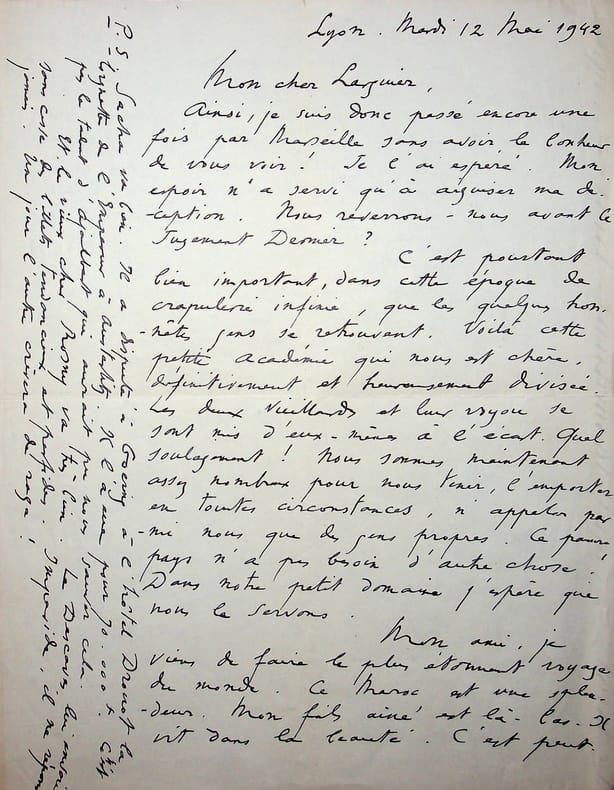 Lyon. Mardi 12 Mai 1942
Mon cher Larguier,
Ainsi, je suis donc passé encore une
fois par Marseille sans avoir le bonheur
de vous voir ! Je l'ai espéré. Mon
espoir n'a servi qu'à aiguiser ma dé-
-ception. Nous reverrons-nous avant le
Jugement Dernier ?
C'est pourtant
bien important, dans cette époque de
crapulerie infinie, que les quelques hon-
-nêtes gens se retrouvent. Voilà cette
petite académie qui nous est chère,
définitivement et heureusement divisée.
Les deux vieillards et leur voyou se
sont mis d'eux-mêmes à l'écart. Quel
soulagement ! Nous sommes maintenant
assez nombreux pour nous tenir, l'emporter
en toutes circonstances, n'appeler par-
-mi nous que des gens propres. Ce pauvre
pays n'a pas besoin d'autre chose !
Dans notre petit domaine j'espère que
nous le servons.
Mon ami, je
viens de faire le plus étonnant voyage
du monde. Ce Maroc est une splen-
-deur. Mon fils aîné est là-bas. Il
vit dans la beauté. C'est peut-
P.S. Sacha va bien. Il a disputé à Goering à l'hôtel Drouot la
lorgnette de l'Empereur à Austerlitz. Il l'a eue pour 70.000 f. C'est
pas le talent d' qui aurait pu nous sauver cela.
Et le vieux cher Rosny va très bien. Le Descaves lui envoie
sans cesse des billets tendancieux et perfides. Impavide, il ne répond
jamais. Un jour l'autre crèvera de rage !